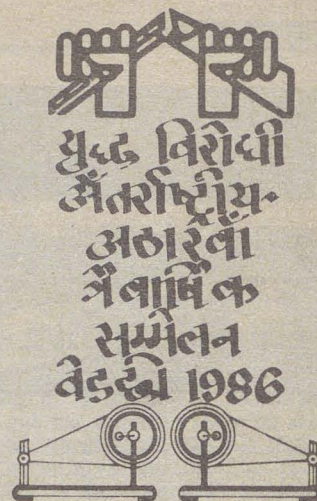 युद्ध विरोधी
अंतर्राष्ट्रीय-
अठारवाँ
त्रैवार्षिक
सम्मेलन
वेडछी 1986